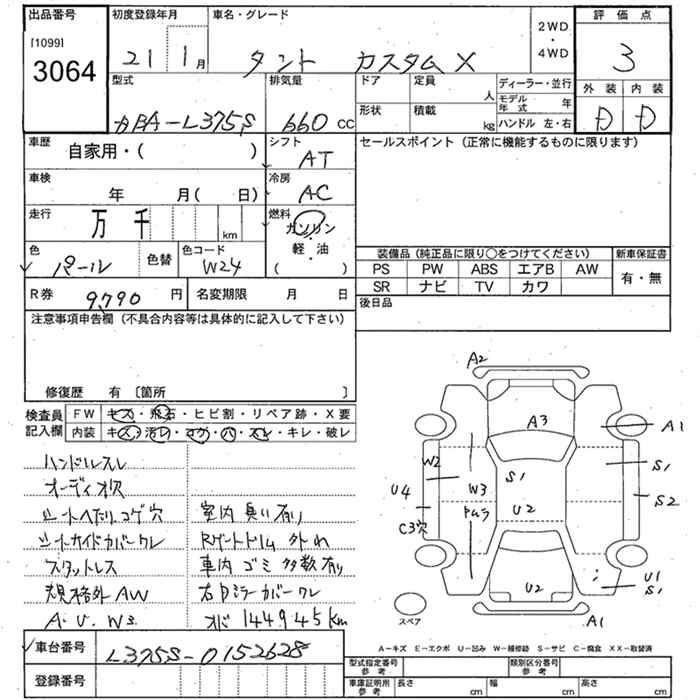 出品番号
[1099]
3064
初度登録年月
21 1月
車名・グレード
タント カスタム X
2WD
・
4WD
評価点
3
外装 内装
D D
型式
CBA-L375S
排気量
660 cc
ドア 定員 人
形状 積載 kg
ディーラー・並行
モデル年式 年
ハンドル 左・右
車歴
自家用・( )
シフト
AT
車検
年 月( 日)
冷房
AC
走行
万 千 km
燃料
ガソリン
軽・油
( )
色
パール
色替
色コード
W24
R券 9,790 円
名変期限 月 日
セールスポイント(正常に機能するものに限ります)
装備品(純正品に限り○をつけてください)
新車保証書
PS PW ABS エアB AW
SR ナビ TV カワ
有・無
後日品
注意事項申告欄(不具合内容等は具体的に記入して下さい)
修復歴 有 〔箇所 〕
検査員記入欄
FW キズ・飛石・ヒビ割・リペア跡・X要
内装 キズ・汚レ・コゲ・穴・スレ・キレ・破レ
ハンドルスレ
オーディオ欠
シートヘたり、コゲ穴
シートサイドカバーワレ
スタットレス
規格外AW
A.U.W3
室内臭い有り
Rゲートトリム外れ
車内ゴミ多数有り
右ドミラーカバーワレ
メーター 144945km
A2
A3
A1
W2
S1
W3
トムラ
U2
U4
C3穴
S1
S2
U2
U1
S1
A1
スペア
A-キズ E-エクボ U-凹み W-補修跡 S-サビ C-腐食 XX-取替済
車台番号 L375S-0152628
登録番号
型式指定番号 参考
類別区分番号 参考
車庫証明用 参考
長さ cm 幅 cm 高さ cm